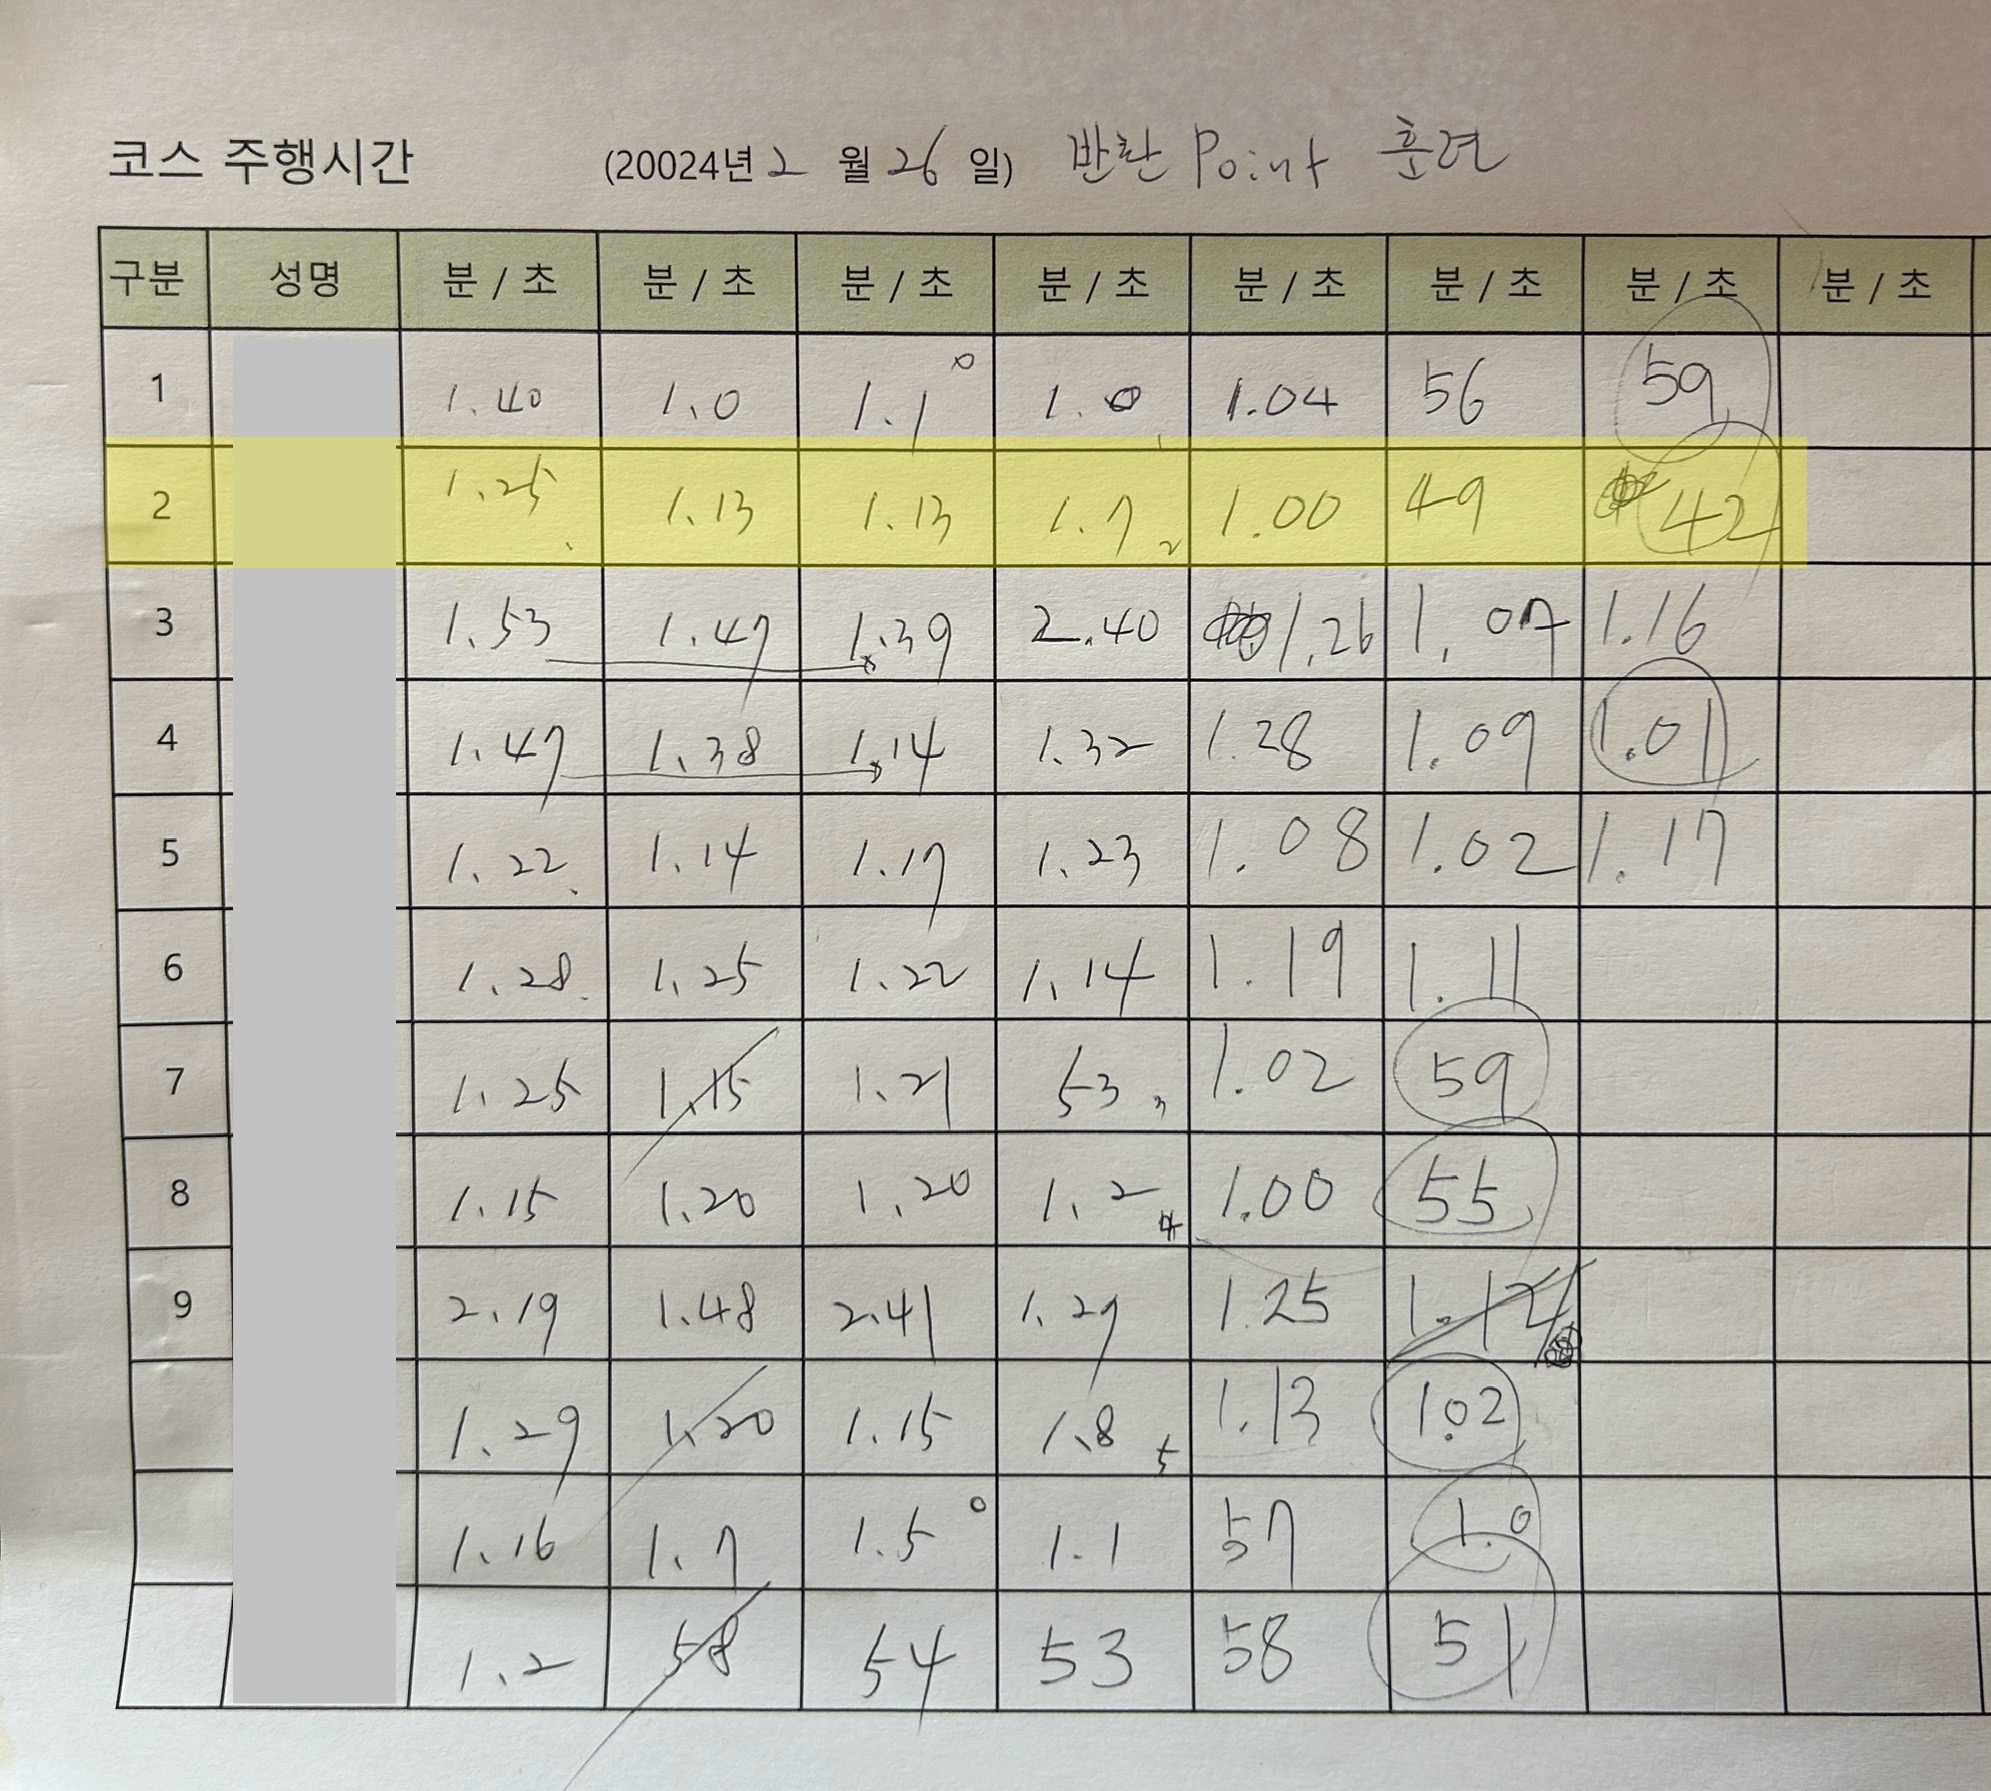 코스 주행시간 (20024년 2 월 26 일) 반환 Point 훈련
구분 성명 분 / 초 분 / 초 분 / 초 분 / 초 분 / 초 분 / 초 분 / 초 분 / 초
1 1.40 1.0 1.1 1.0 1.04 56 59
2 1.25 1.13 1.13 1.7 2 1.00 49 42
3 1.53 1.47 1.39 2.40 1.26 1.07 1.16
4 1.47 1.38 1.14 1.32 1.28 1.09 1.01
5 1.22 1.14 1.17 1.23 1.08 1.02 1.17
6 1.28 1.25 1.22 1.14 1.19 1.11
7 1.25 1.15 1.21 53 3 1.02 59
8 1.15 1.20 1.20 1.2 4 1.00 55
9 2.19 1.48 2.41 1.29 1.25
1.29 1.20 1.15 1.8 5 1.13 1.02
1.16 1.7 1.5 1.1 57 1.0
1.2 58 54 53 58 51